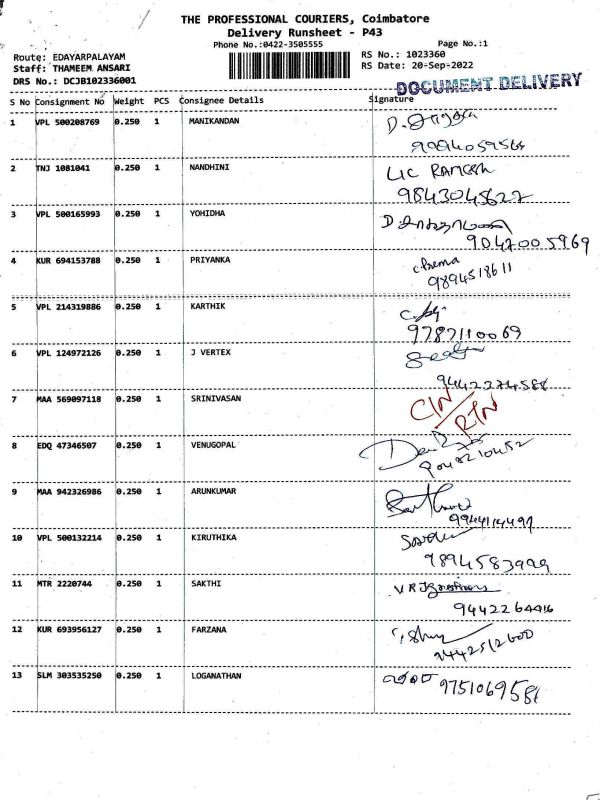 THE PROFESSIONAL COURIERS, Coimbatore
Delivery Runsheet - P43
Phone No.:0422-3505555
Page No.:1
Route: EDAYARPALAYAM
RS No.: 1023360
Staff: THAMEEM ANSARI
RS Date: 20-Sep-2022
DRS No.: DCJB102336001
DOCUMENT DELIVERY
S No Consignment No Weight PCS Consignee Details Signature
1 VPL 500208769 0.250 1 MANIKANDAN
2 TNJ 1081041 0.250 1 NANDHINI LIC RAMESH
9843045622
3 VPL 500165993 0.250 1 YOHIDHA
9047005969
4 KUR 694153788 0.250 1 PRIYANKA
9894518611
5 VPL 214319886 0.250 1 KARTHIK
9787110069
6 VPL 124972126 0.250 1 J VERTEX
7 MAA 569097118 0.250 1 SRINIVASAN
8 EDQ 47346507 0.250 1 VENUGOPAL
9 MAA 942326986 0.250 1 ARUNKUMAR
10 VPL 500132214 0.250 1 KIRUTHIKA
11 MTR 2220744 0.250 1 SAKTHI
9442264416
12 KUR 693956127 0.250 1 FARZANA
9442512600
13 SLM 303535250 0.250 1 LOGANATHAN
9751069581